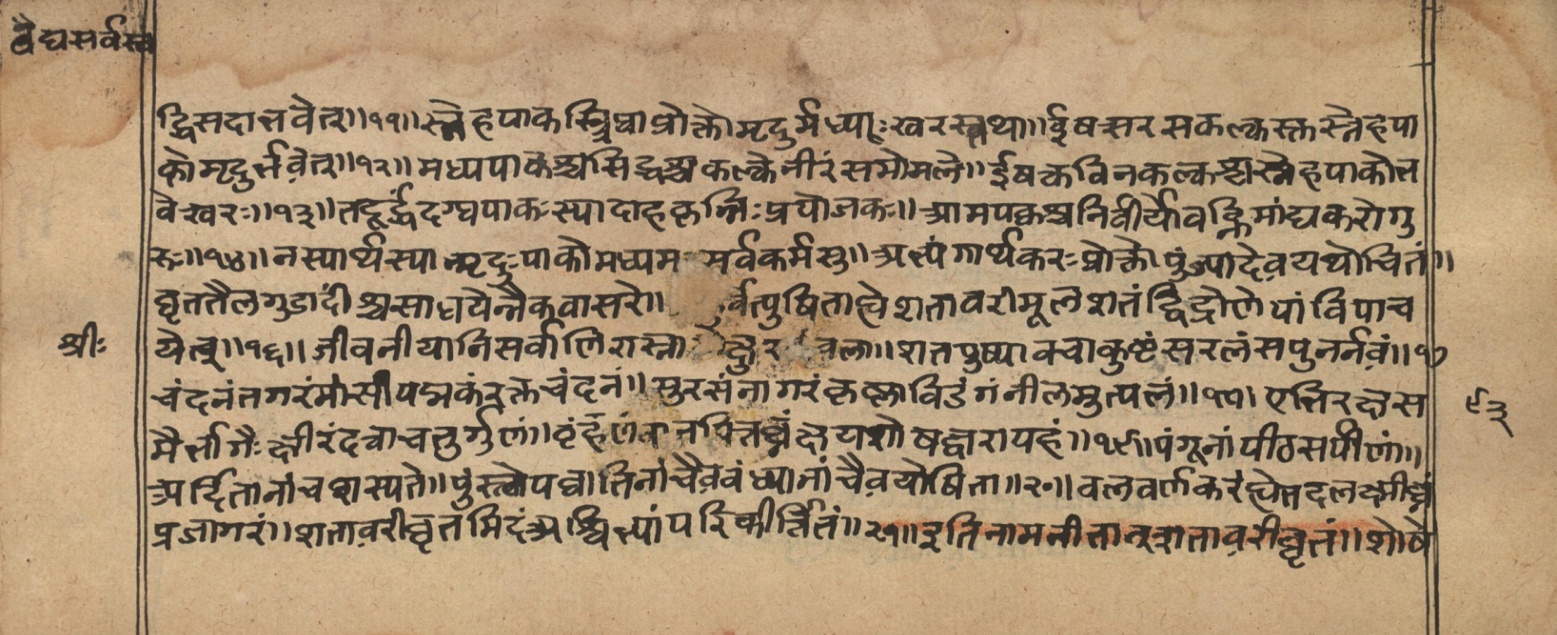 वैद्यसर्वस्व
द्विसदाभवेत्॥११॥स्नेहपाकस्त्रिधाप्रोक्तोमृदुर्मध्याःखरस्तथा॥ईषत्सरसकल्कस्तस्नेहपा
कोमृदुर्भवेत्॥१२॥मध्यपाकश्चसिद्धश्चकल्केनीरंसभोमले॥ईषत्कठिनकल्कश्चस्नेहपाकोभ
वेखरः॥१३॥तदूर्द्धंदग्धपाकःस्यादाहकृन्निःप्रयोजकः॥आमपक्वश्चनिर्वीर्योवह्निमांद्यकरोगु
रुः॥१४॥नस्यार्थस्यान्मृदुःपाकोमध्यम सर्वकर्मसु॥अभ्यंगार्थकरःप्रोक्तोपुंज्यादेवयथोचितं॥
घृततैलगुडादींश्चसाधयेन्नैकवासरे॥ र्वत्पुषिताह्वेशतावरीमूलशतंद्विद्रोणेपांविपाच
श्रीः
येत्॥१६॥जीवनीयानिसर्वाणिरास्ना बला॥शतपुष्पावचाकुष्टंसरलंसपुनर्नवं॥१७
चंदनंतगरंमांसीपद्मकंरक्तचंदनं॥सुरसंनागरंकृष्णाविडंगंनीलमुत्पलं॥१८॥एभिरक्षस
९३
मैर्भागैःक्षीरंदत्वाचतुर्गुणं॥वृंहणंवातपित्तघ्नंक्षयशोषद्वारापहं॥१९॥पंगूनांपीठसर्पीणां॥
अर्द्दितानांचशस्पते॥पुंस्त्वोपघातिनांचैववंध्यानांचैवयोषिता॥२०॥बलवर्णकरंह्येतदलक्ष्मीघ्नं
प्रजागरं॥शतावरीघृतमिदंअश्विभ्यांपरिकीर्त्तितं॥२१॥इतिनामनीतात्शतावरीघृतं॥शोषे